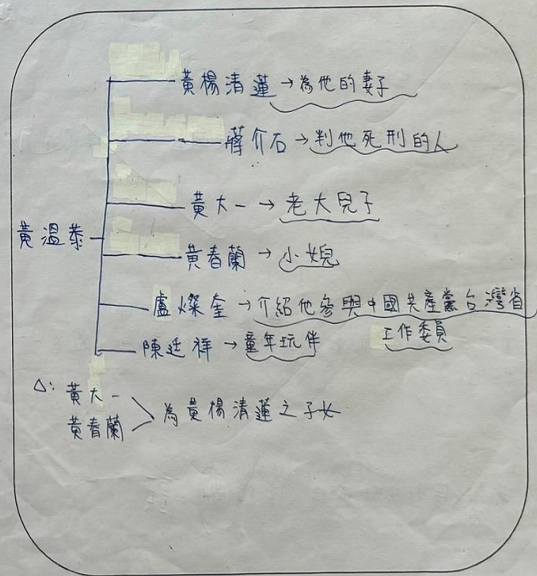 黃楊清蓮→為他的妻子
蔣介石→判他死刑的人
黃大一→老大兒子
黃溫泰
黃春蘭→小女兒
盧燦奎→介紹他參與中國共產黨台灣省
工作委員
陳廷祥→童年玩伴
△:黃大一
黃春蘭
為黃楊清蓮之子女